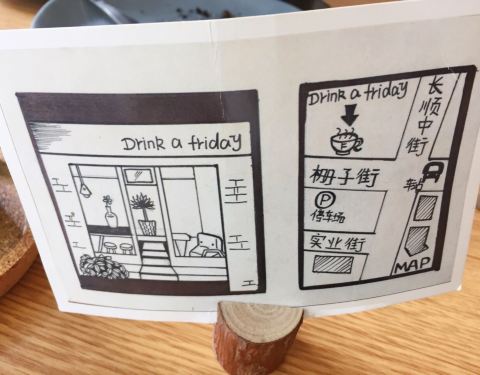 Drink a friday
Drink a friday
长顺中街
栅子街
车站
P
停车场
实业街
MAP